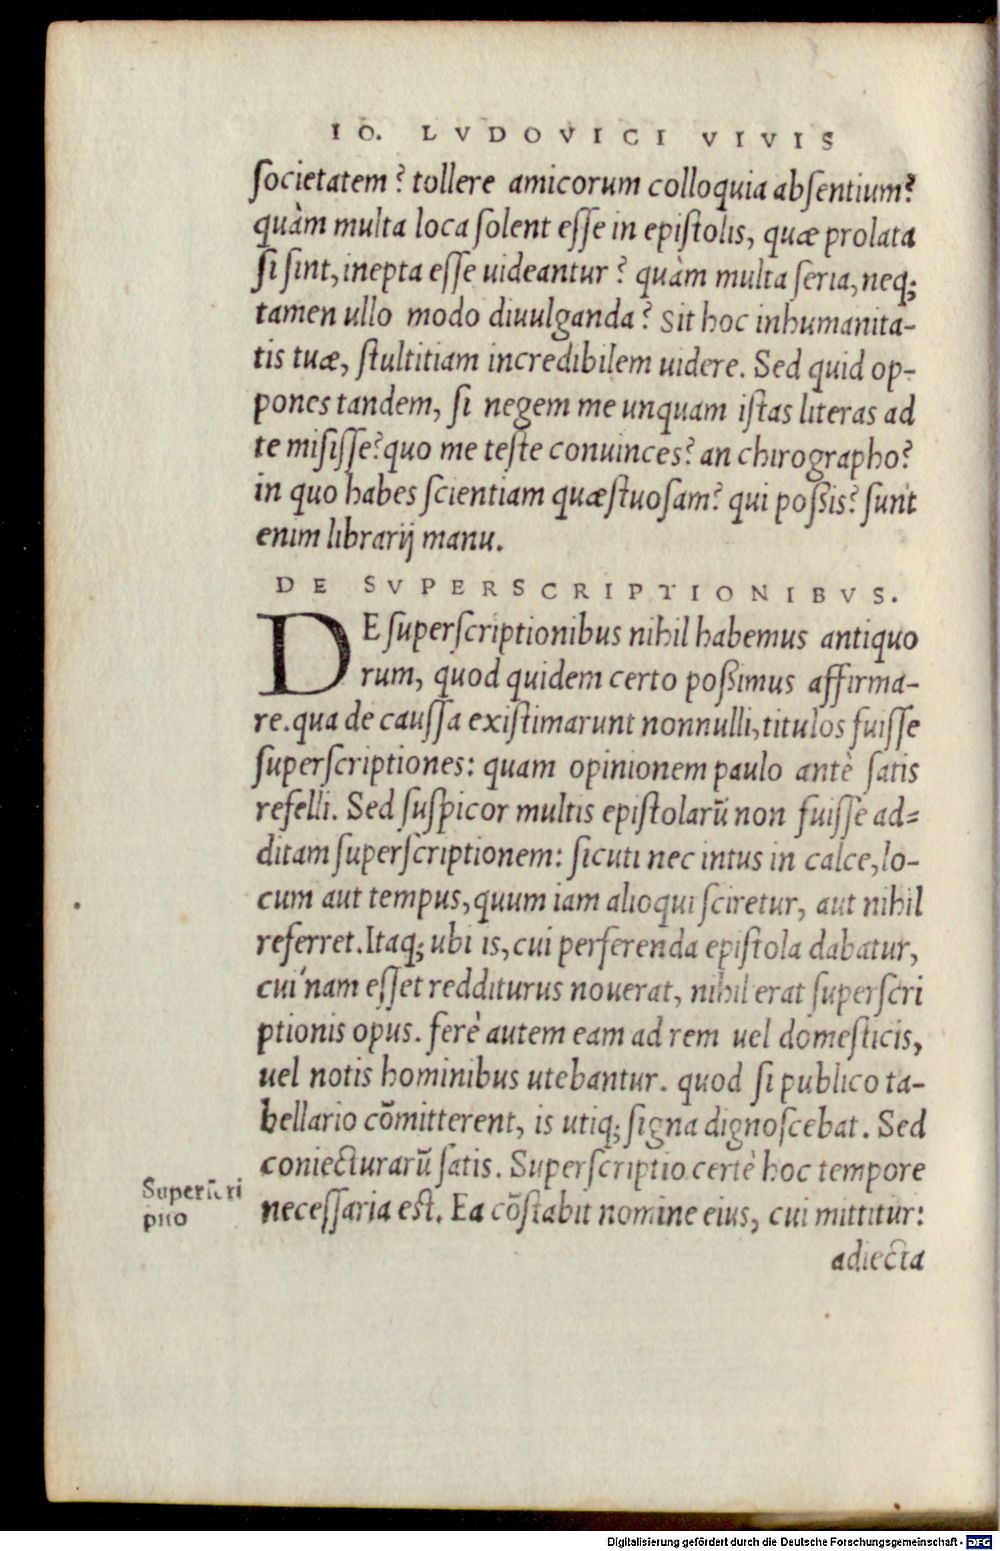 IO. LVDOVICI VIVIS
ſocietatem? tollere amicorum colloquia abſentium?
quàm multa loca ſolent eſſe in epiſtolis, quæ prolata
ſi ſint, inepta eſſe uideantur? quàm multa ſeria, neq;
tamen ullo modo diuulganda? Sit hoc inhumanita-
tis tuæ, ſtultitiam incredibilem uidere. Sed quid op-
pones tandem, ſi negem me unquam iſtas literas ad
te miſiſſe? quo me teſte conuinces? an chirographo?
in quo habes ſcientiam quæſtuoſam? qui poßis? ſunt
enim librarij manu.
DE SVPERSCRIPTIONIBVS.
DE ſuperſcriptionibus nihil habemus antiquo
rum, quod quidem certo poßimus affirma-
re. qua de cauſſa exiſtimarunt nonnulli, titulos fuiſſe
ſuperſcriptiones: quam opinionem paulo antè ſatis
refelli. Sed ſuſpicor multis epiſtolarū non fuiſſe ad=
ditam ſuperſcriptionem: ſicuti nec intus in calce, lo-
cum aut tempus, quum iam alioqui ſciretur, aut nihil
referret. Itaq; ubi is, cui perferenda epiſtola dabatur,
cui'nam eſſet redditurus nouerat, nihil erat ſuperſcri
ptionis opus. ferè autem eam ad rem uel domeſticis,
uel notis hominibus utebantur. quod ſi publico ta-
bellario cōmitterent, is utiq; ſigna dignoſcebat. Sed
coniecturarū ſatis. Superſcriptio certè hoc tempore
Superſcri
ptio
neceſſaria eſt. Ea cōſtabit nomine eius, cui mittitur:
adiecta
Digitalisierung gefördert durch die Deutsche Forschungsgemeinschaft - DFG